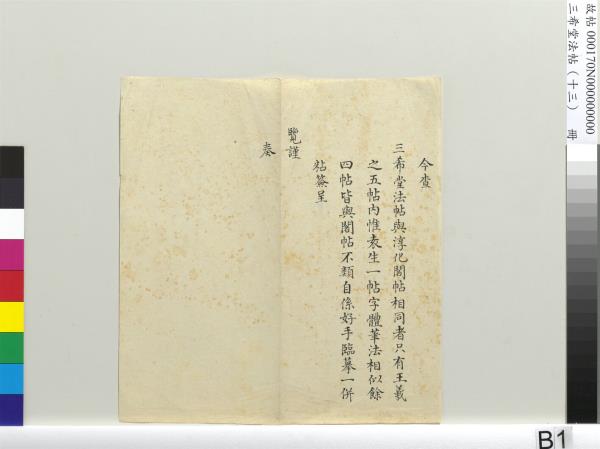 今查
三希堂法帖與淳化閣帖相同者只有王羲
之五帖內惟袁生一帖字體筆法相似餘
四帖皆與閣帖不類自係好手臨摹一併
粘簽呈
覽謹
奏
故帖 000170N000000000
三希堂法帖（十三） 冊
B1